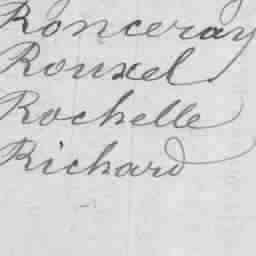 Ronceray
Rouxel
Rochelle
Richard